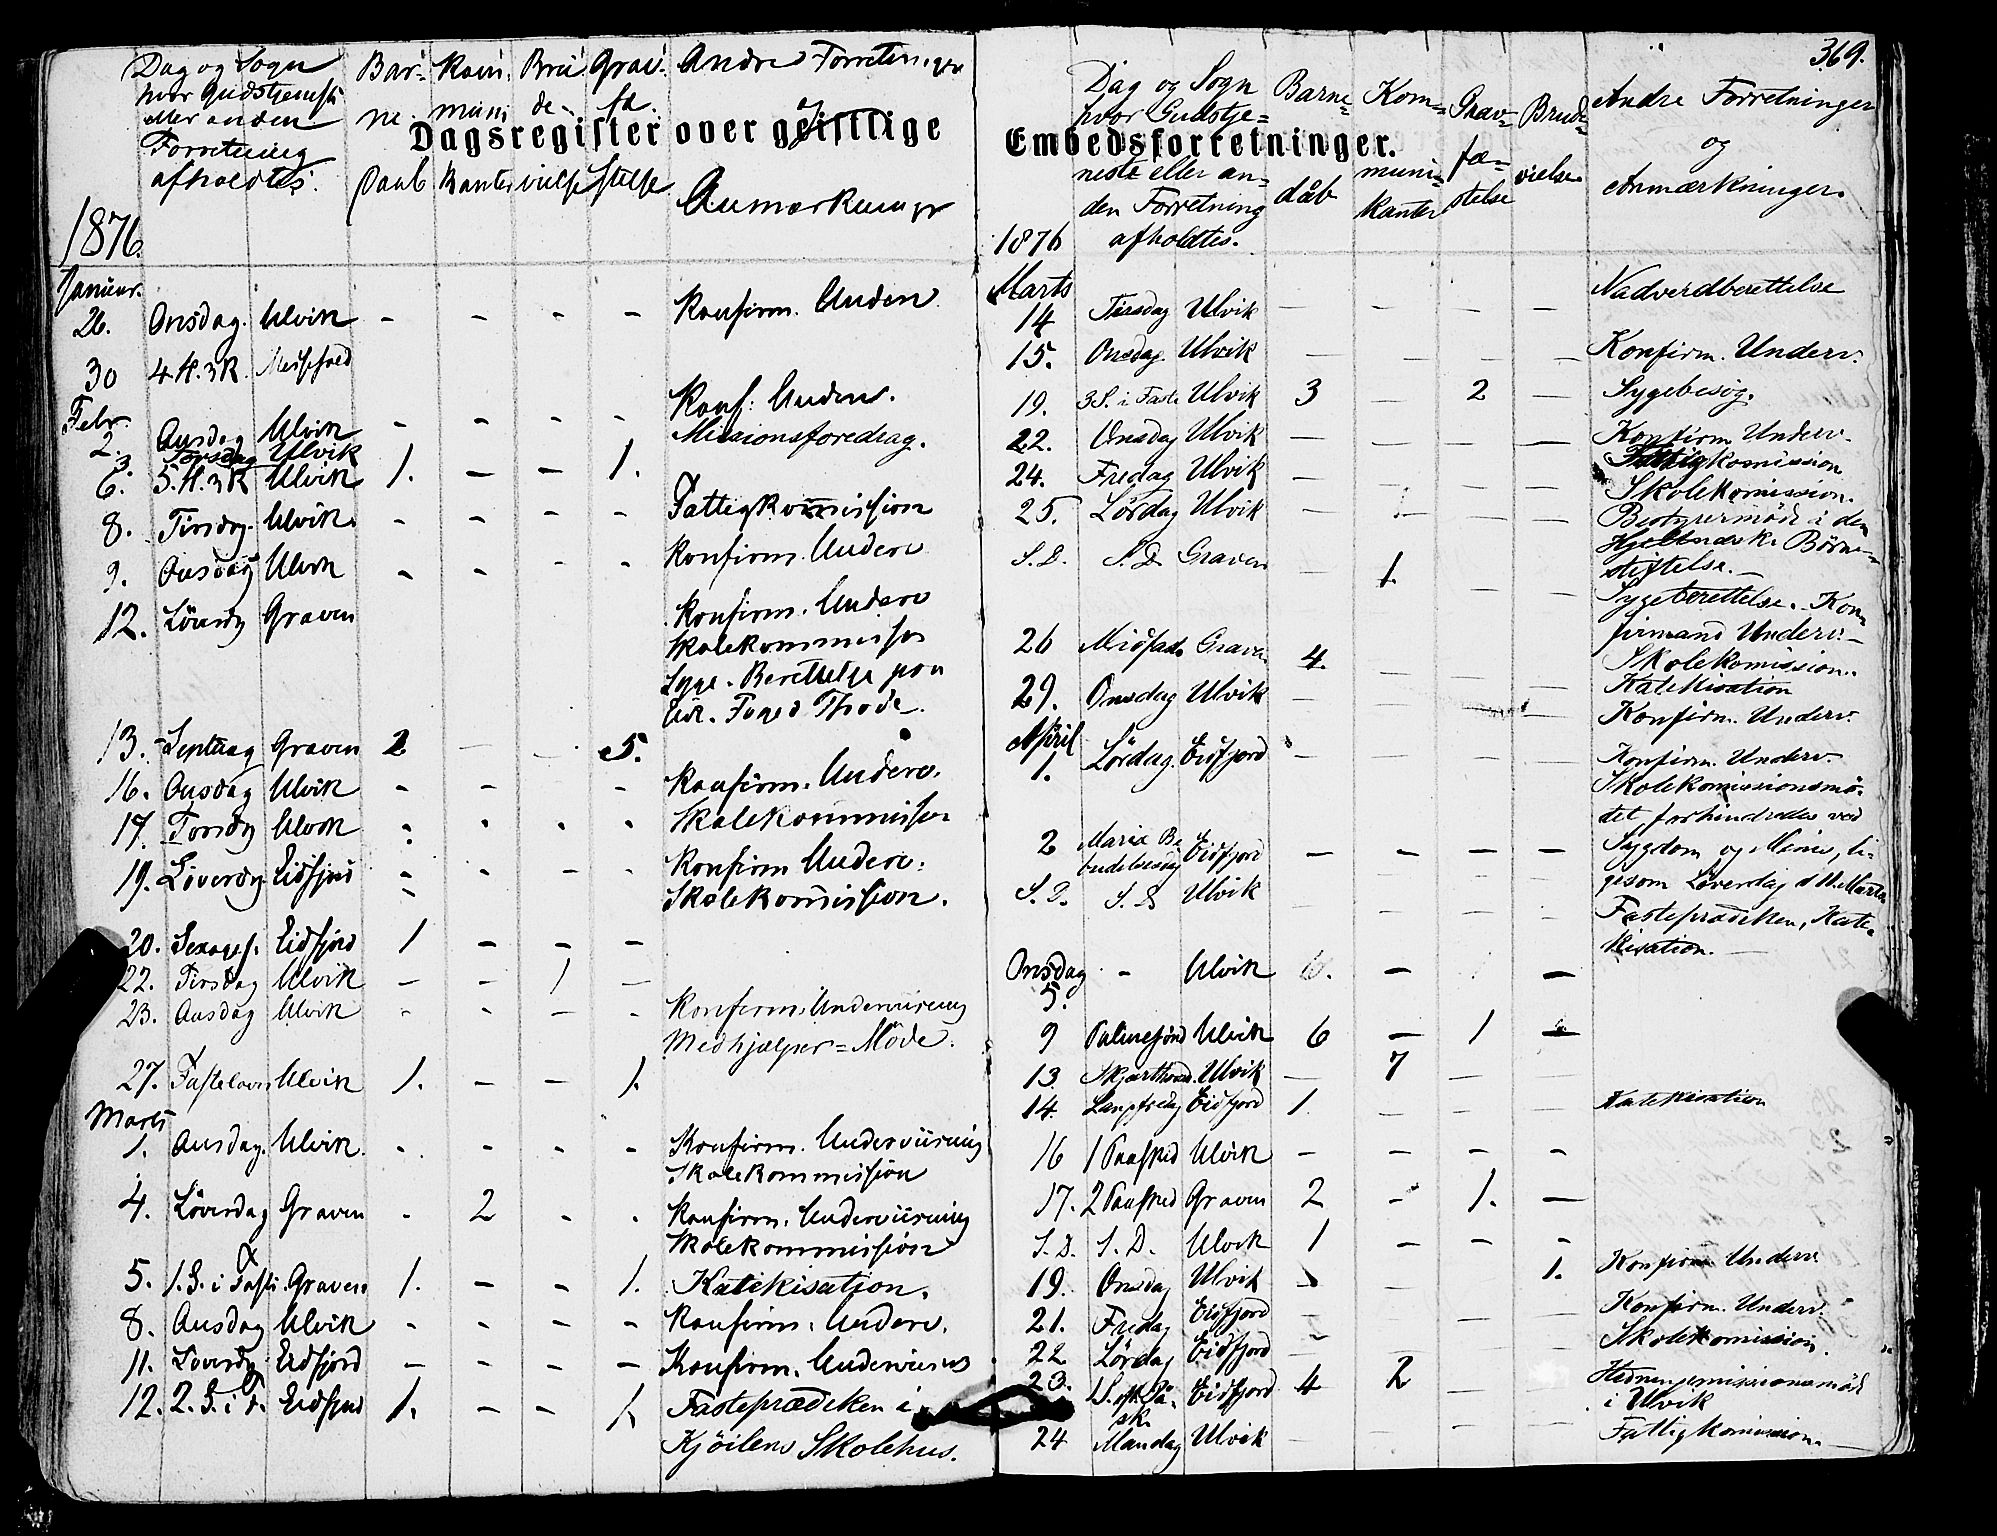 369.
Dagsregister over geistlige Embedsforretninger.
Dag og Sogn
hvor Gudstjeneste
eller anden
Forretning
afholdtes.
Barne Daab
Kommuni Kanter
Brude vielse
Grav fæ stelse
Andre Forretninger
og
Anmærkninger
1876.
Januar.
26. Onsdag. Ulvik - - - - Konfirm. Underv
30 4 S. H. 3 K.
Febr.
2. Onsdag Ulvik - - - - Konf: Underv.
3. Torsdag Ulvik Missionsforedrag.
6. 5. S. H. 3 K Ulvik 1. - - 1.
8. Tirsdag. Ulvik. - - - - Fattigkommission
9. Onsdag Ulvik - - - - Konfirm. Underv
12. Löverdg Graven Konfirm. Underv
Skolekommission
Syge-Berettelse paa
Foged Thode.
13. Septuag Graven 2 - - 5.
16. Onsdag Ulvik - - - Konfirm. Underv.
17. Torsdg Ulvik - - - - Skolekommission
19. Löverdg. Eidfjord - - - - Konfirm Underv.
Skolekommission.
20. Sexages. Eidfjord 1 - - -
22. Tirsdag Ulvik - - 1 -
23. Onsdag Ulvik - - - - Konfirm. Underviisning
Medhjælper=Møde.
27. Fastelavn Ulvik 1. - - 1.
Marts
1. Onsdag. Ulvik. - - - - Konfirm. Underviisning
Skolekommission
4. Löverdag Graven - 2 - - Konfirm. Underviisning
Skolekommission
5. 1. S. i Faste. Graven 1. - - 1. Katekisation.
8. Onsdag Ulvik - - - - Konfirm. Underv.
11. Löverdg. Eidfjord - - - - Konfirm. Underviisn
12. 2. S. i F. Eidfjord 1. - - 1. Fasteprædiken i
Kjöilens Skolehus.
Dag og Sogn
hvor Gudstje=
neste eller an=
den Forretning
afholdtes.
Barne= dåb
Kom= muni= kanter
Grav= fæ= stelse
Brude= vielse
Andre Forretninger
og
Anmærkninger.
1876
Marts
14 Tirsdag Ulvik - - - - Nadverdberettelse
15. Onsdag. Ulvik - - - - Konfirm. Underv.
19. 3 S. i Faste Ulvik 3 - 2 - Sygebesøg.
22. Onsdag Ulvik - - - - Konfirm Underv.
24. Fredag Ulvik - - - - Fattigkomission
Skolekomission.
25. Lördag Ulvik - - - Bestyrermöde i den
Hjeltnæske Børne=
stiftelse.-
S. D. S. D. Graven - 1. - - Sygeberettelse. Kon
firmand Underv.-
Skolekomission.
26 Midfaste Graven 4. - - - Katekisation
29. Onsdag Ulvik - - - Konfirm. Underv.
April
1. Lördag. Eidfjord - - - - Konfirm. Underv.
Skolekomissionsmö-
det forhindredes ved
Sygdom og Menis, li-
gesom Löverdag d 11. Marts
2 Mariæ Be
budelsesdag Eidfjord - - - -
S. D. S. D Ulvik - - - - Fasteprædiken, Kate-
kisation.-
Onsdag
5. - Ulvik - -
9 Palmesönd Ulvik 6 - 1 -
13. Skjærthorsd. Ulvik - 7 -
14. Langfredag Eidfjord 1. - - - Katekisation
16 1 Paasked Ulvik - - - -
17. 2 Paasked Graven 2 - 1. -
S. D. S. D. Ulvik 1 - - -
19. Onsdag Ulvik - - - 1. Konfirm Underv.
21. Fredag Eidfjord - - - Konfirm. Underv.
22 Lördag Eidfjord - - - Skolekomission.
23. 1 S. eft. På-
sk. Eidfjord 4 2 - Hedningemissionsmöde
i Ulvik
24 Mandag Ulvik - - - - Fattigkomission.